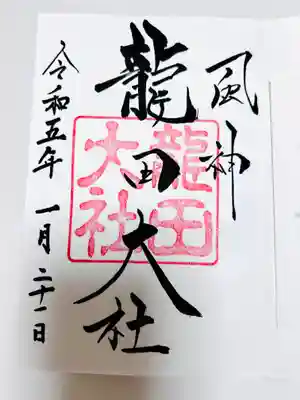 風神
龍田大社
龍田
大社
令和五年 一月二十一日